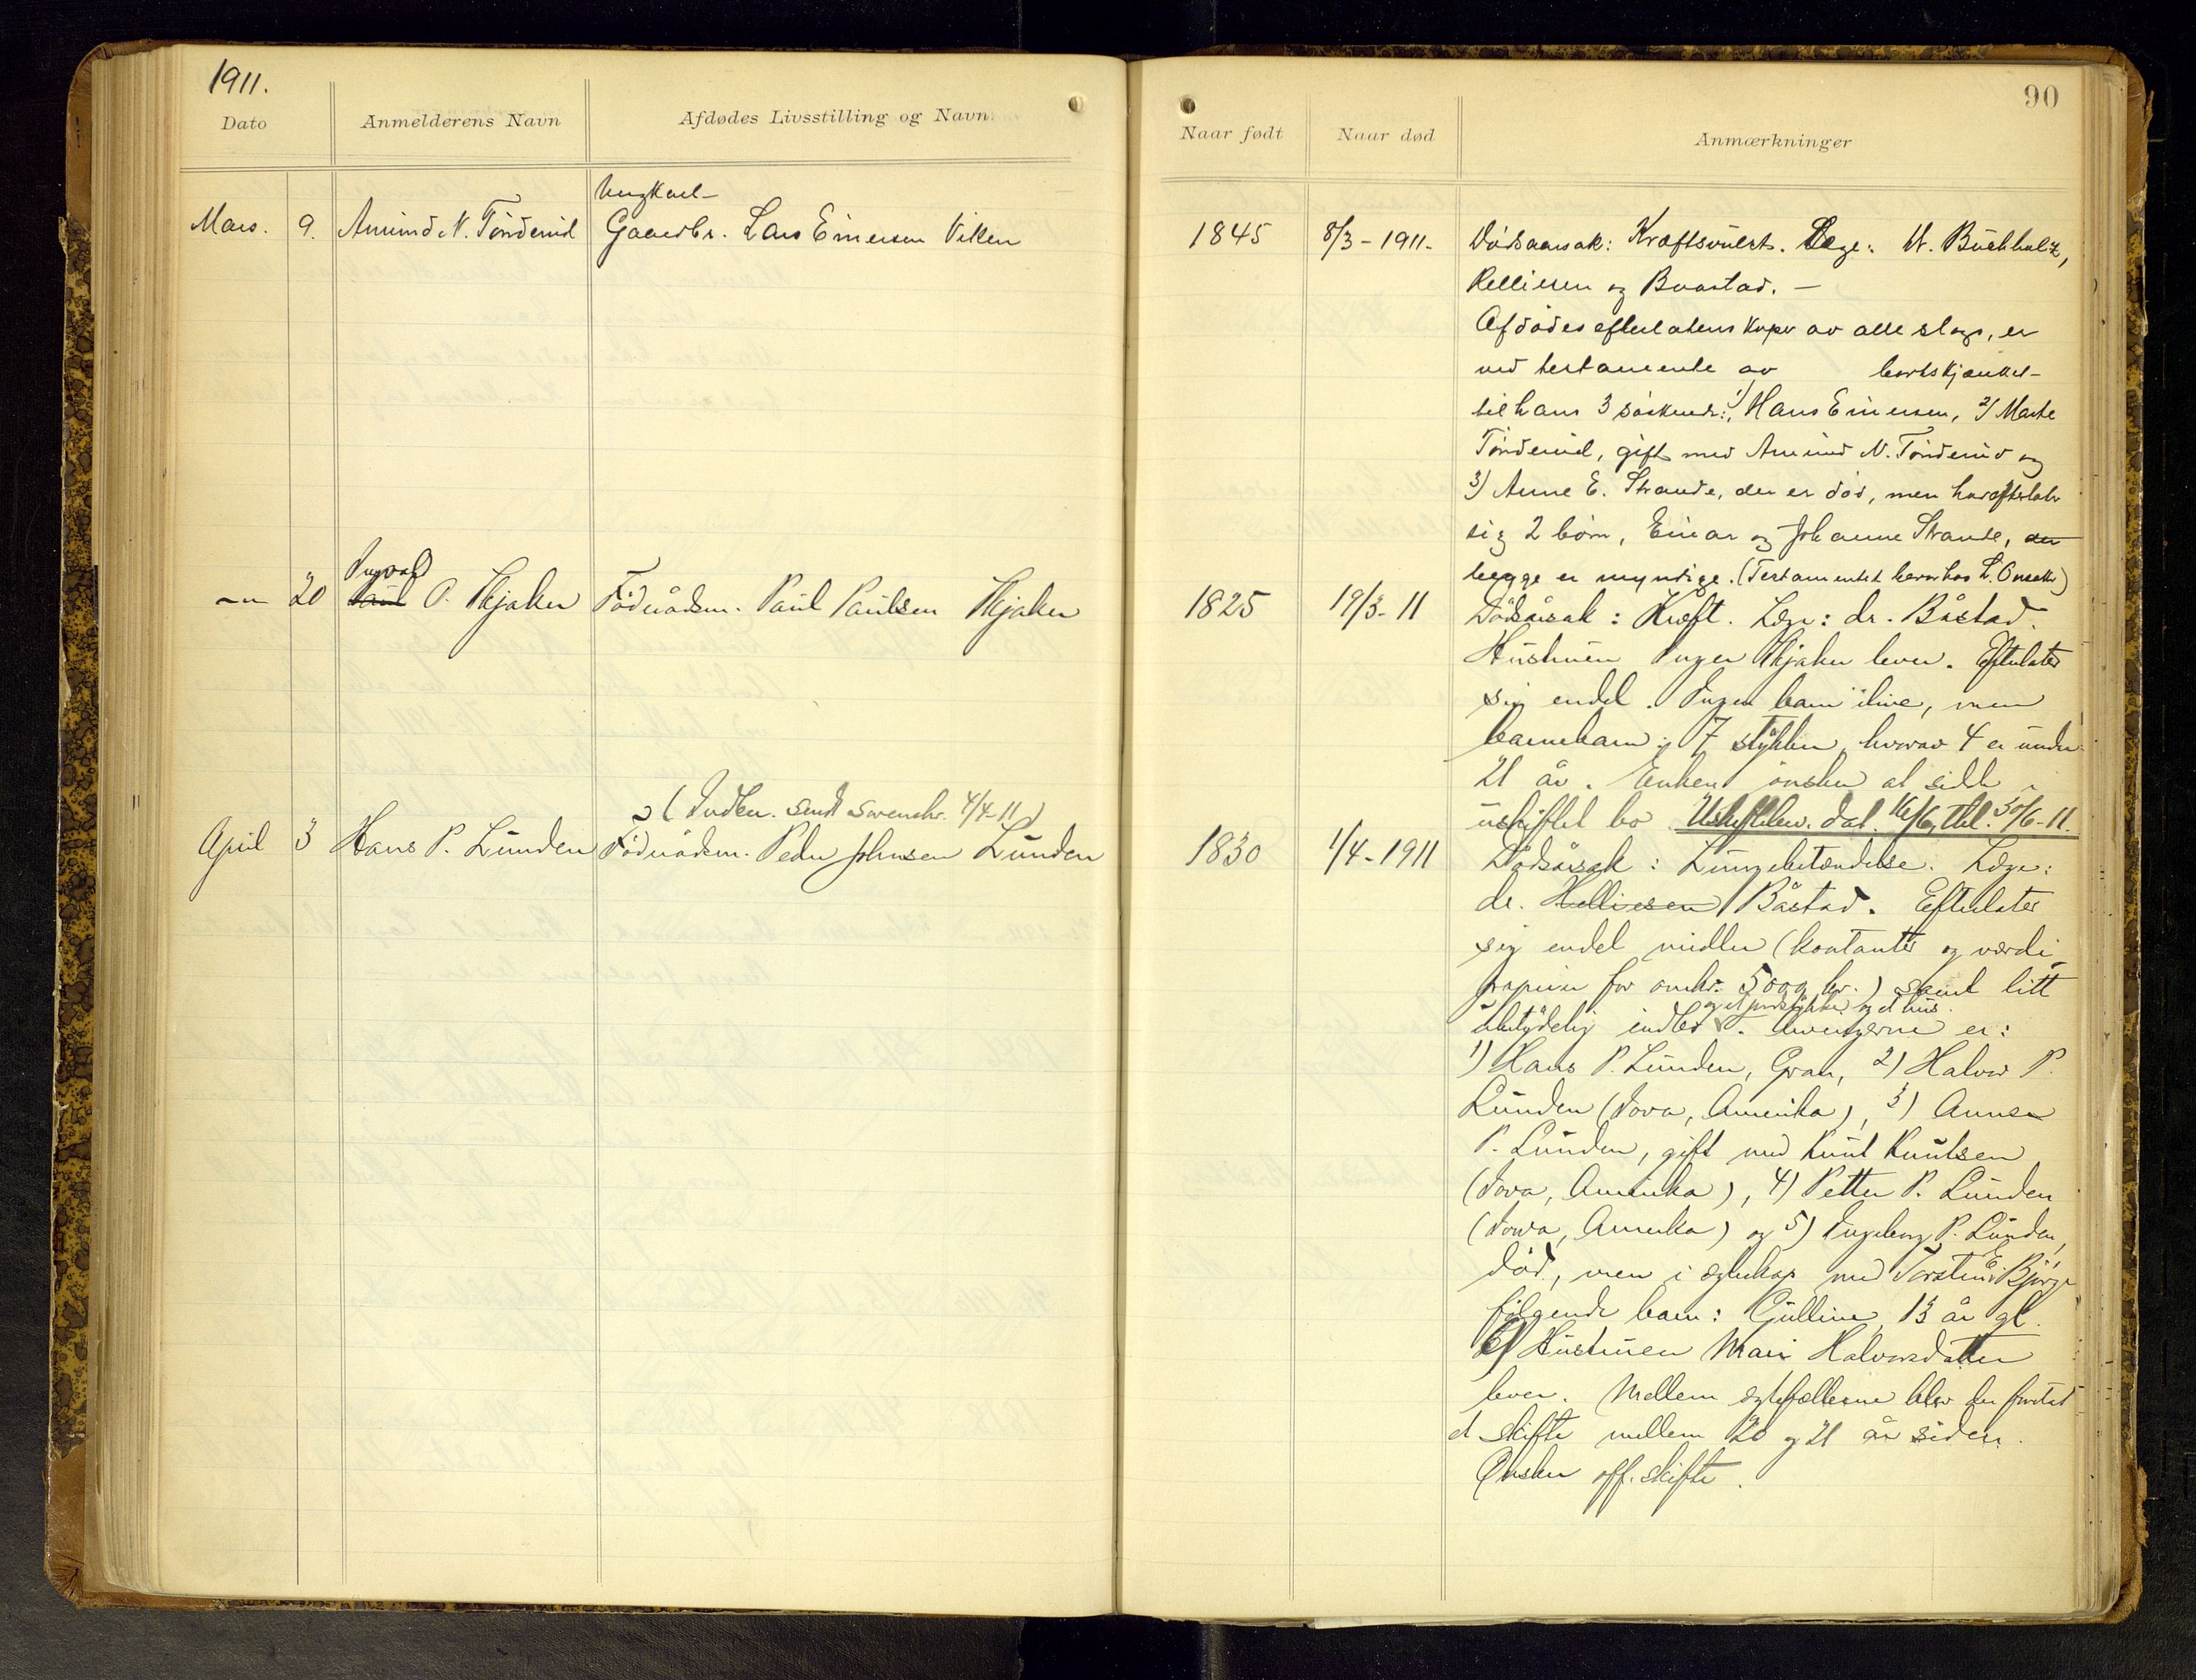 1911.
90
Dato
Anmelderens Navn
Afdødes Livsstilling og Navn
Naar født
Naar død
Anmærkninger
Ungkarl-
Mars. 9. Amund N. Tönderud Gaardbr. Lars Einersen Viken 1845 8/3-1911. Dödsaarsak: Kræftsvulst. Læge: W. Buchholz,
og Baastad. –
Afdødes efterlatenskaper av alle slags, er
ved testamente av bortskjænket
til hans 3 söskende: 1/ Hans Einersen, 2/ Marte
Tönderud, gift med Amund N. Tönderud og
3) Anne E. Strande, der er död, men har efterlatt
sig 2 börn, Einar og Johanne Strande, der
begge er myndige. (Testamentet beror hos L. )
Ingvald
–"– 20 Paul P. Skjaker Föderådsm. Paul Paulsen Skjaker 1825 19/3-11 Dödsårsak: Kræft. Læge: dr. Båstad.
Hustruen Inger Skjaker lever. Efterlater
sig endel. Ingen barn ilive, men
barnebarn: 7 stykker, hvorav 4 er under
21 år. Enken önsker at sidde i
uskiftet bo. Uskiftebev. dat. 16/6, 30/6-11.
(Indber. sendt 4/4-11)
April 3 Hans P. Lunden Föderådsm. Peder Johnsen Lunden 1830 1/4-1911 Dödsårsak: Lungebetændelse. Læge:
dr. Helliesen Båstad. Efterlater
sig endel midler (kontanter og værdi
papirer for omkr. 5000 kr.) samt litt
og et jordstykke og et hus.
ubetydelig indbo. Arvingerne er:
1) Hans P. Lunden, Gran, 2) Halvor P.
Lunden (Iova, Amerika), 3) Anne
P. Lunden, gift med Knut Knutsen
(Iova, Amerika), 4) Petter P. Lunden
(Iowa, Amerika) og 5) Ingeborg P. Lunden,
död, men i egteskap med Torsten E. Björge
fölgende barn: Gulline, 13 år gl.
6) Hustruen Mari Halvorsdatter
lever. Mellem egtefællerne blev der foretat
et skifte mellem 20 og 21 år siden.
Önsker off. skifte.